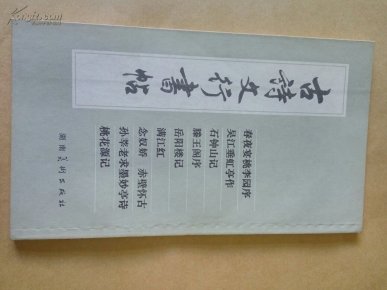 古詩文行書帖
春夜宴桃李园序
吴江垂虹亭作
石钟山记
滕王阁序
岳阳楼记
满江红
念奴娇 赤壁怀古
孙莘老求墨妙亭诗
桃花源记
湖南美术出版社